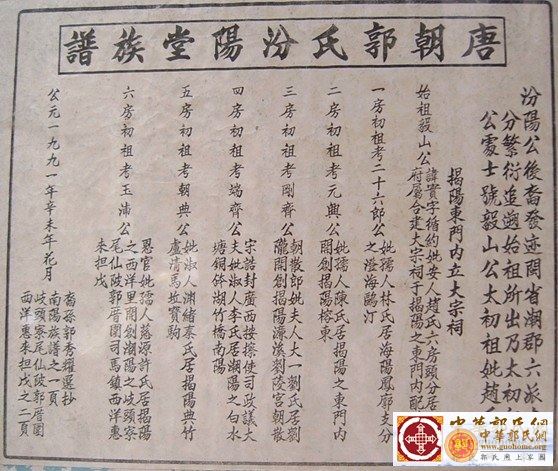 唐朝郭氏汾陽堂族譜
汾陽公後裔發迹閩省潮郡六派
分繁衍追遡始祖所出乃太初
公處士號毅山公太初祖妣趙
揭陽東門内立大宗祠
始祖毅山公
諱實字循約妣安人趙氏六房頭分居
府屬合建大宗祠于揭陽之東門内配
一房初祖考二十六郎公
妣孺人林氏居海陽鳳廓支分
之澄海鷗汀
二房初祖考元興公
妣孺人陳氏居揭陽之東門内
開創揭陽榕東
三房初祖考剛齊公
朝散郎妣夫人丈一劉氏居劉
隴開創揭陽濂溪劉陵宮朝散
四房初祖考端齊公
宋誥封廣西按擦使司政議大
夫妣淑人李氏居潮陽之白水
塘銅鉢湖竹橋南陽
五房初祖考朝典公
妣淑人渊緒氏居揭陽典竹
盧清馬坟賢駒
六房初祖考玉浦公
恩官妣孺人落源許氏居揭陽
之西洋里開創潮陽之歧頭寮
尾仙陂郭厝圍司馬鎮西洋惠
来担戊
公元一九九一年辛未年花月
裔孫郭秀耀選抄
南陽族譜之一頁
歧頭寮尾仙陂郭厝圍
西洋惠来担戊之二頁
中華郭氏網
www.guohome.org
郭氏網上家園